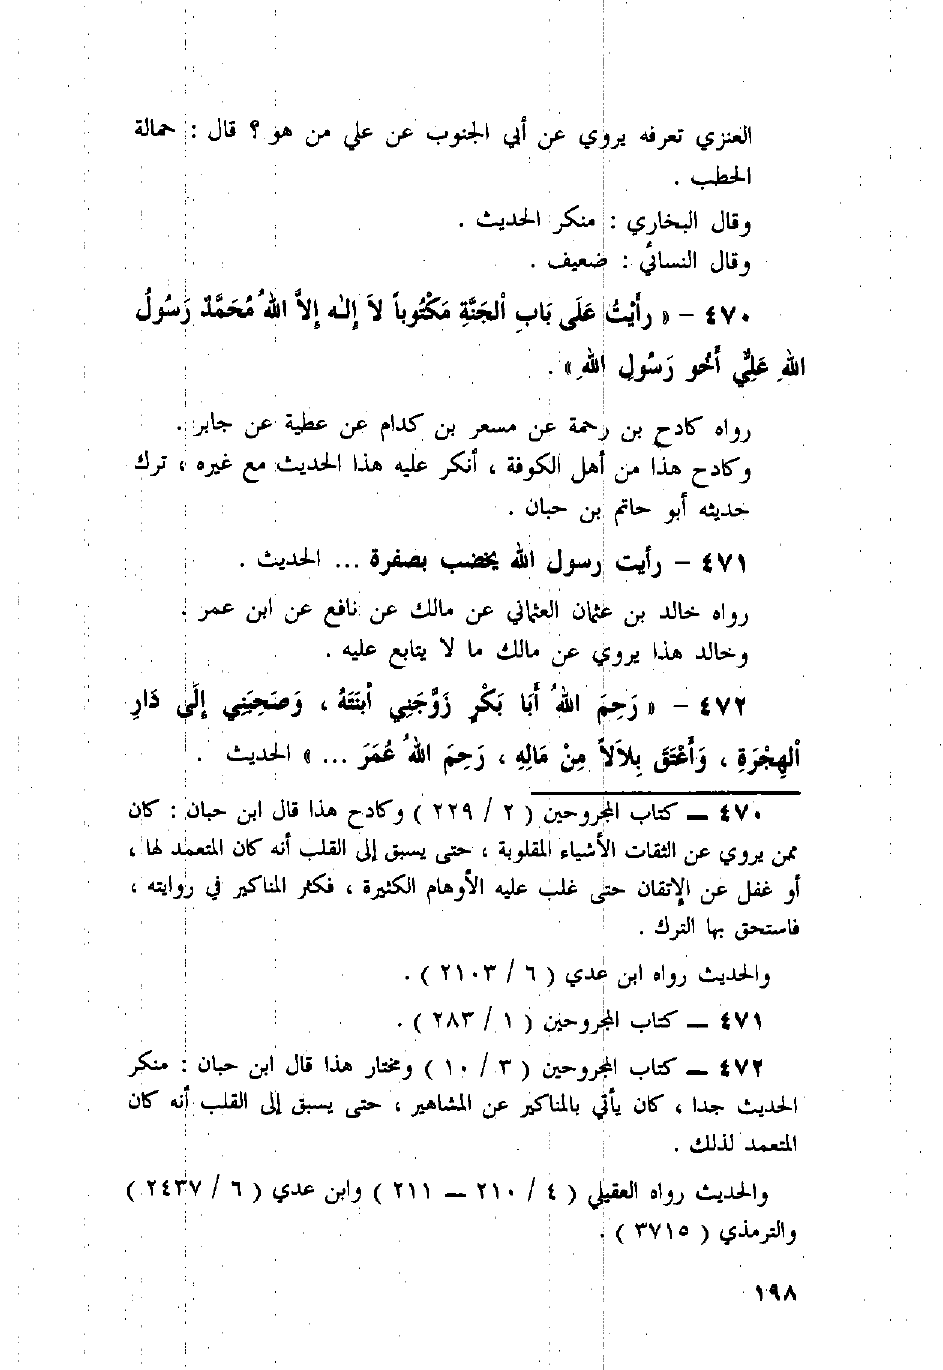 العنزي تعرفه يروي عن أبي الجنوب عن علي من هو ؟ قال : حمالة
الحطب .
وقال البخاري : منكر الحديث .
وقال النسائي : ضعيف .
٤٧٠ - « رأَيْتُ عَلَى بَابِ الْجَنَّةِ مَكْتُوباً لاَ إِلٰه إِلاَّ اللهُ مُحَمَّدٌ رَسُولُ
اللهِ عَلِيٌّ أَخُو رَسُولِ اللهِ » .
رواه كادح بن رحمة عن مسعر بن كدام عن عطية عن جابر .
وكادح هذا من أهل الكوفة ، أنكر عليه هذا الحديث مع غيره ، ترك
حديثه أبو حاتم بن حبان .
٤٧١ - رأيت رسول الله يخضب بصفرة ... الحديث .
رواه خالد بن عثمان العثماني عن مالك عن نافع عن ابن عمر .
وخالد هذا يروي عن مالك ما لا يتابع عليه .
٤٧٢ - « رَحِمَ اللهُ أَبَا بَكْرٍ زَوَّجَنِي ابْنَتَهُ ، وَصَحِبَنِي إِلَى دَارِ
الْهِجْرَةِ ، وَأَعْتَقَ بِلاَلاً مِنْ مَالِهِ ، رَحِمَ اللهُ عُمَرَ ... » الحديث .
٤٧٠ ــ كتاب المجروحين ( ٢ / ٢٢٩ ) وكادح هذا قال ابن حبان : كان
ممن يروي عن الثقات الأشياء المقلوبة ، حتى يسبق إلى القلب أنه كان المتعمد لها ،
أو غفل عن الإتقان حتى غلب عليه الأوهام الكثيرة ، فكثر المناكير في روايته ،
فاستحق بها الترك .
والحديث رواه ابن عدي ( ٦ / ٢١٠٣ ) .
٤٧١ ــ كتاب المجروحين ( ١ / ٢٨٣ ) .
٤٧٢ ــ كتاب المجروحين ( ٣ / ١٠ ) ومختار هذا قال ابن حبان : منكر
الحديث جدا ، كان يأتي بالمناكير عن المشاهير ، حتى يسبق إلى القلب أنه كان
المتعمد لذلك .
والحديث رواه العقيلي ( ٤ / ٢١٠ ــ ٢١١ ) وابن عدي ( ٦ / ٢٤٣٧ )
والترمذي ( ٣٧١٥ ) .
١٩٨